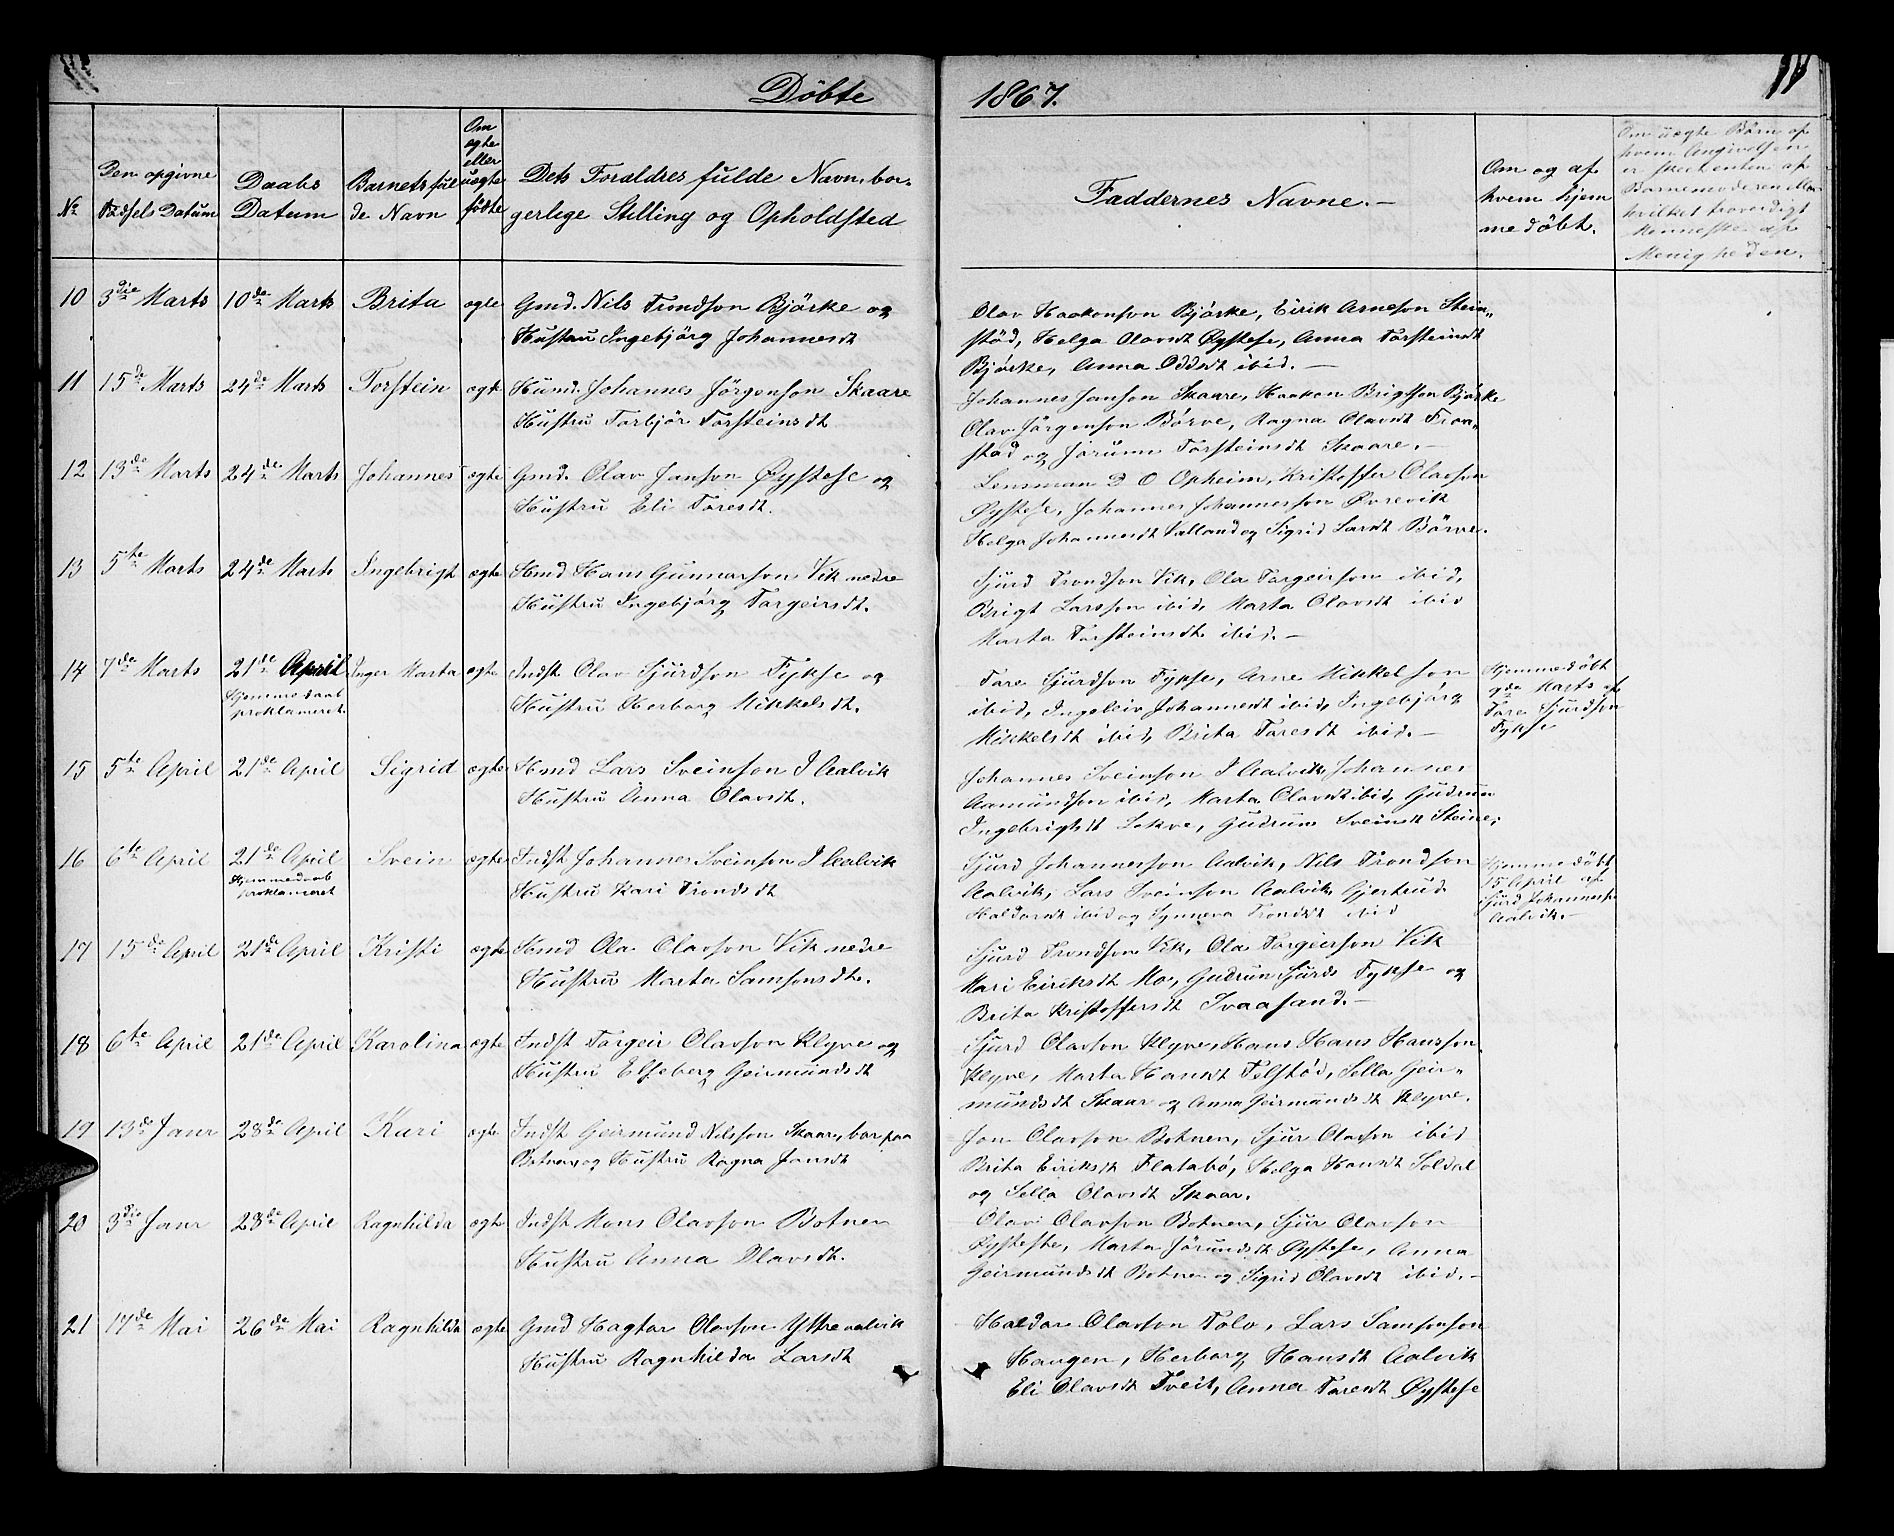 Döbte
1867.
No
Den opgivne Fødsels Datum
Daabs Datum
Barnets fulde Navn
Om ægte eller uægte födte
Dets Foraldres fulde Navn, borgerlige Stilling og Opholdsted
Faddernes Navne. —
Om og af hvem hjemmedöbt.
Om uægte Børn af hvem Angivelsen er skeet enten af Barnemoderen eller hvilket troverdigt Menneske af Menigheden.
10 3die Marts 10de Marts Brita ægte Gmd. Nils Trondson Bjärke og
Hustru Ingebjörg Johannesdt
Olav Haakonson Bjórke, Eirik Arneson Stein-
stöd, Helga Olavsdt Øystese, Anna Torsteinsdt
Bjórke, Anna Oddsdt ibid. —
11 15de Marts 24de Marts Torstein ægte Husmd. Johannes Jörgenson Skaare
Hustru Torbjör Torsteinsdt
Johannes Janson Skaare, Haakon Brigtson Bjórke
Olav Jörgenson Börve, Ragna Olavsdt
og Jörunn Torsteinsdt Skaare. —
12 13de Marts 24de Marts Johannes ægte Gmd. Olav Janson Øystese og
Hustru Eli Toresdt.
Lensman D O Opheim, Kristoffer Olavson
Øystese, Johannes Johannesson Øvrevik
Helga Johannesdt Valland og Sigrid Larsdt Börve.
13 5te Marts 24de Marts Ingebrigt ægte Hmd Hans Gunnarson Vik nedre
Hustru Ingebjörg Torgeirsdt.
Sjurd Trondson Vik, Ola Torgeirson ibid,
Brigt Larsson ibid, Marta Olavsdt ibid
Marta Torsteinsdt ibid. —
14 7de Marts 21de April Inger Marta ægte Indst Olav Sjurdson Fykse og
Hjemmedaab proklameret.
Hustru Herborg Mikkelsdt.
Tore Sjurdson Fykse, Arne Mikkelson
ibid, Ingeleiv Johannesdt ibid, Ingebjörg
Mikkelsdt ibid, Brita Toresdt ibid. —
Hjemmedöbt
9de Marts af
Tore Sjurdson
Fykse
15 5te April 21de April Sigrid ægte Hmd Lars Sveinson I Aalvik
Hustru Anna Olavsdt.
Johannes Sveinson I Aalvik, Johannes
Aamundson ibid, Marta Olavsdt ibid, Gudrun
Ingebrigtsdt Lekve, Gudrun Sveinsdt Steine,
16 6te April 21de April Svein ægte Indst Johannes Sveinson I Aalvik
Hjemmedaab proklameret
Hustru Kari Trondsdt
Sjurd Johannesson Aalvik, Nils Trondson
Aalvik, Lars Sveinson Aalvik, Gjertrud
Haldorsdt ibid og Synneva Trondsdt ibid
Hjemmedöbt
15 April af
Sjurd Johannesson
Aalvik. —
17 15de April 21de April Kristi ægte Hmd Ola Olavson Vik nedre
Hustru Marta Samsonsdt.
Sjurd Trondson Vik, Ola Torgeirson Vik
Mari Eiriksdt Mo, Gudrun Sjurds Fykse og
Brita Kristoffersdt Svaasand. —
18 6te April 21de April Karolina ægte Indst Torgeir Olavson Klyve og
Hustru Elseberg Geirmundsdt
Sjurd Olavson Klyve, Hans Hans Hansson
Klyve, Marta Hansdt Tolstöd, Sella Geir-
mundsdt Skaar og Anna Geirmundsdt Klyve.
19 13de Janr 28de April Kari ægte Indst Geirmund Nilsson Skaar, bor paa
Botnen og Hustru Ragna Jonsdt
Jon Olavson Botnen, Sjur Olavson ibid
Brita Eiriksdt Flatabö, Helga Hansdt Soldal
og Sella Olavsdt Skaar.
20 3die Janr 28de April Ragnhilda ægte Indst Mons Olavson Botnen
Hustru Anna Olavsdt.
Olav Olavson Botnen, Sjur Olavson
Øystese, Marta Jörundsdt Øystese, Anna
Geirmundsdt Botnen og Sigrid Olavsdt ibid. —
21 17de Mai 26de Mai Ragnhilda ægte Gmd Hagtor Olavson Ytre aalvik
Hustru Ragnhilda Larsdt
Haldor Olavson Tolo, Lars Samsonson
Haugen, Herborg Hansdt Aalvik
Eli Olavsdt Tveit, Anna Toresdt Øystese